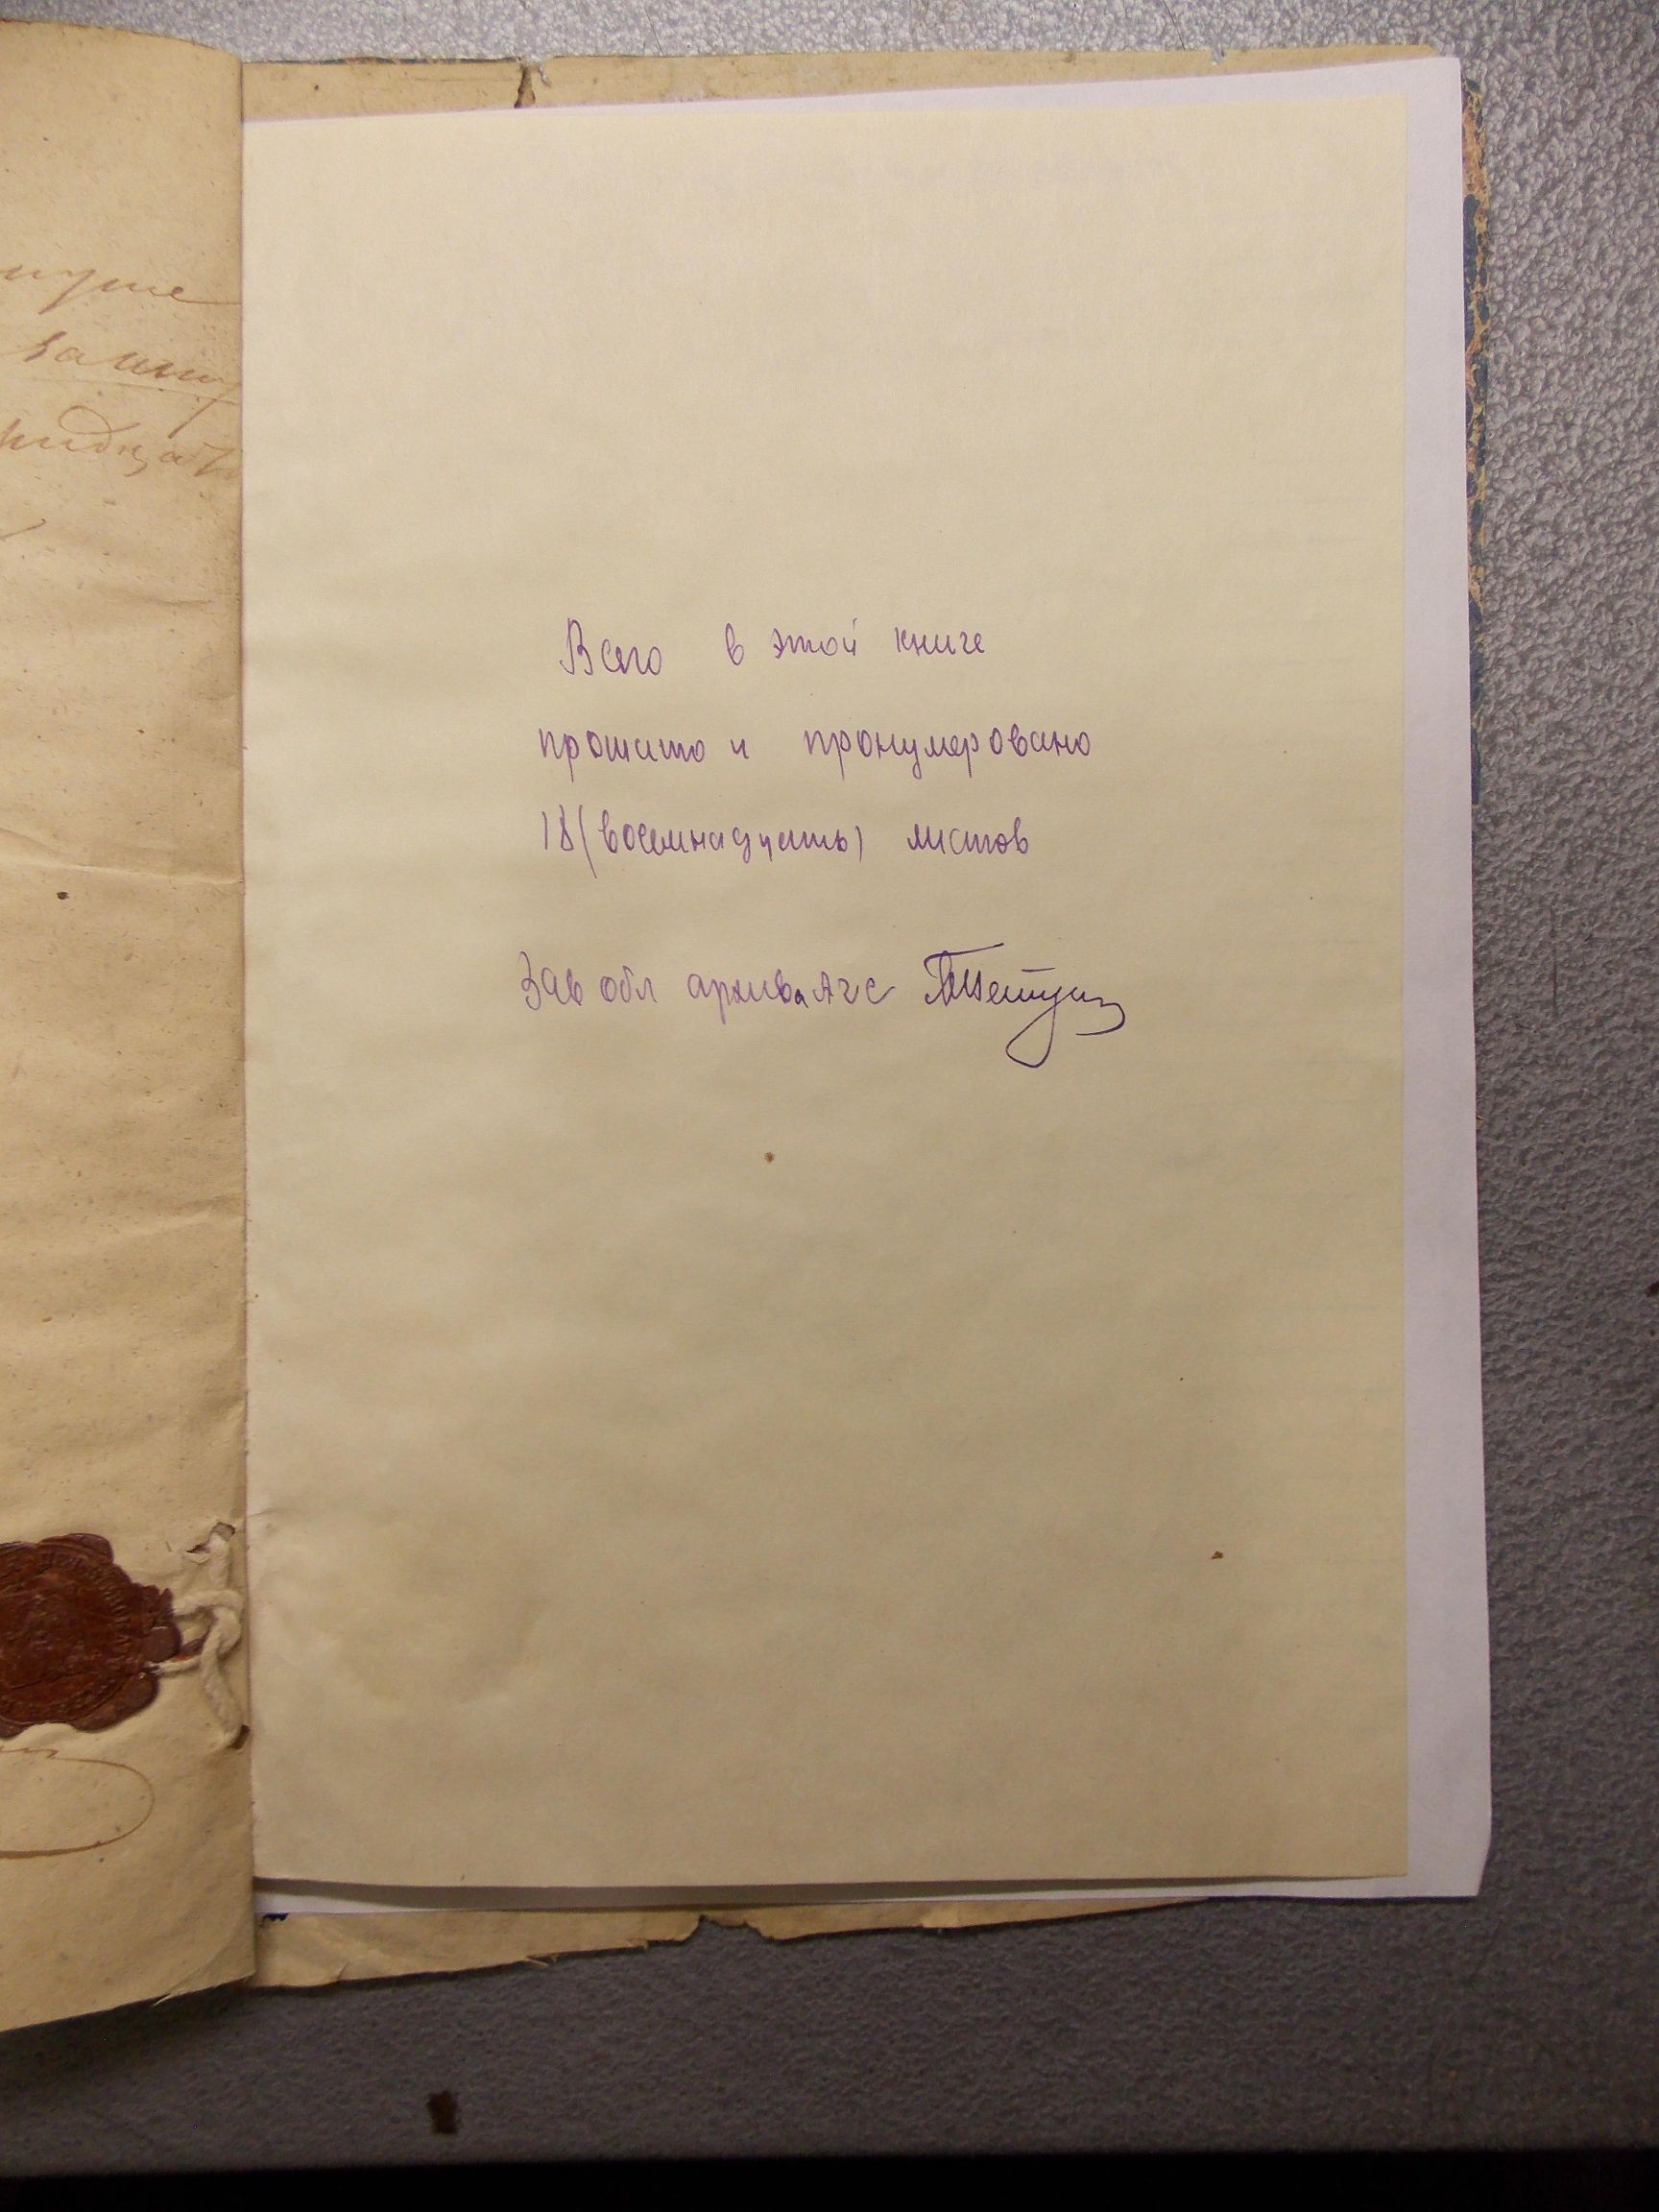 Всего в этой книге
прошито и пронумеровано
18 (восемнадцать) листов
Зав обл архива АГС